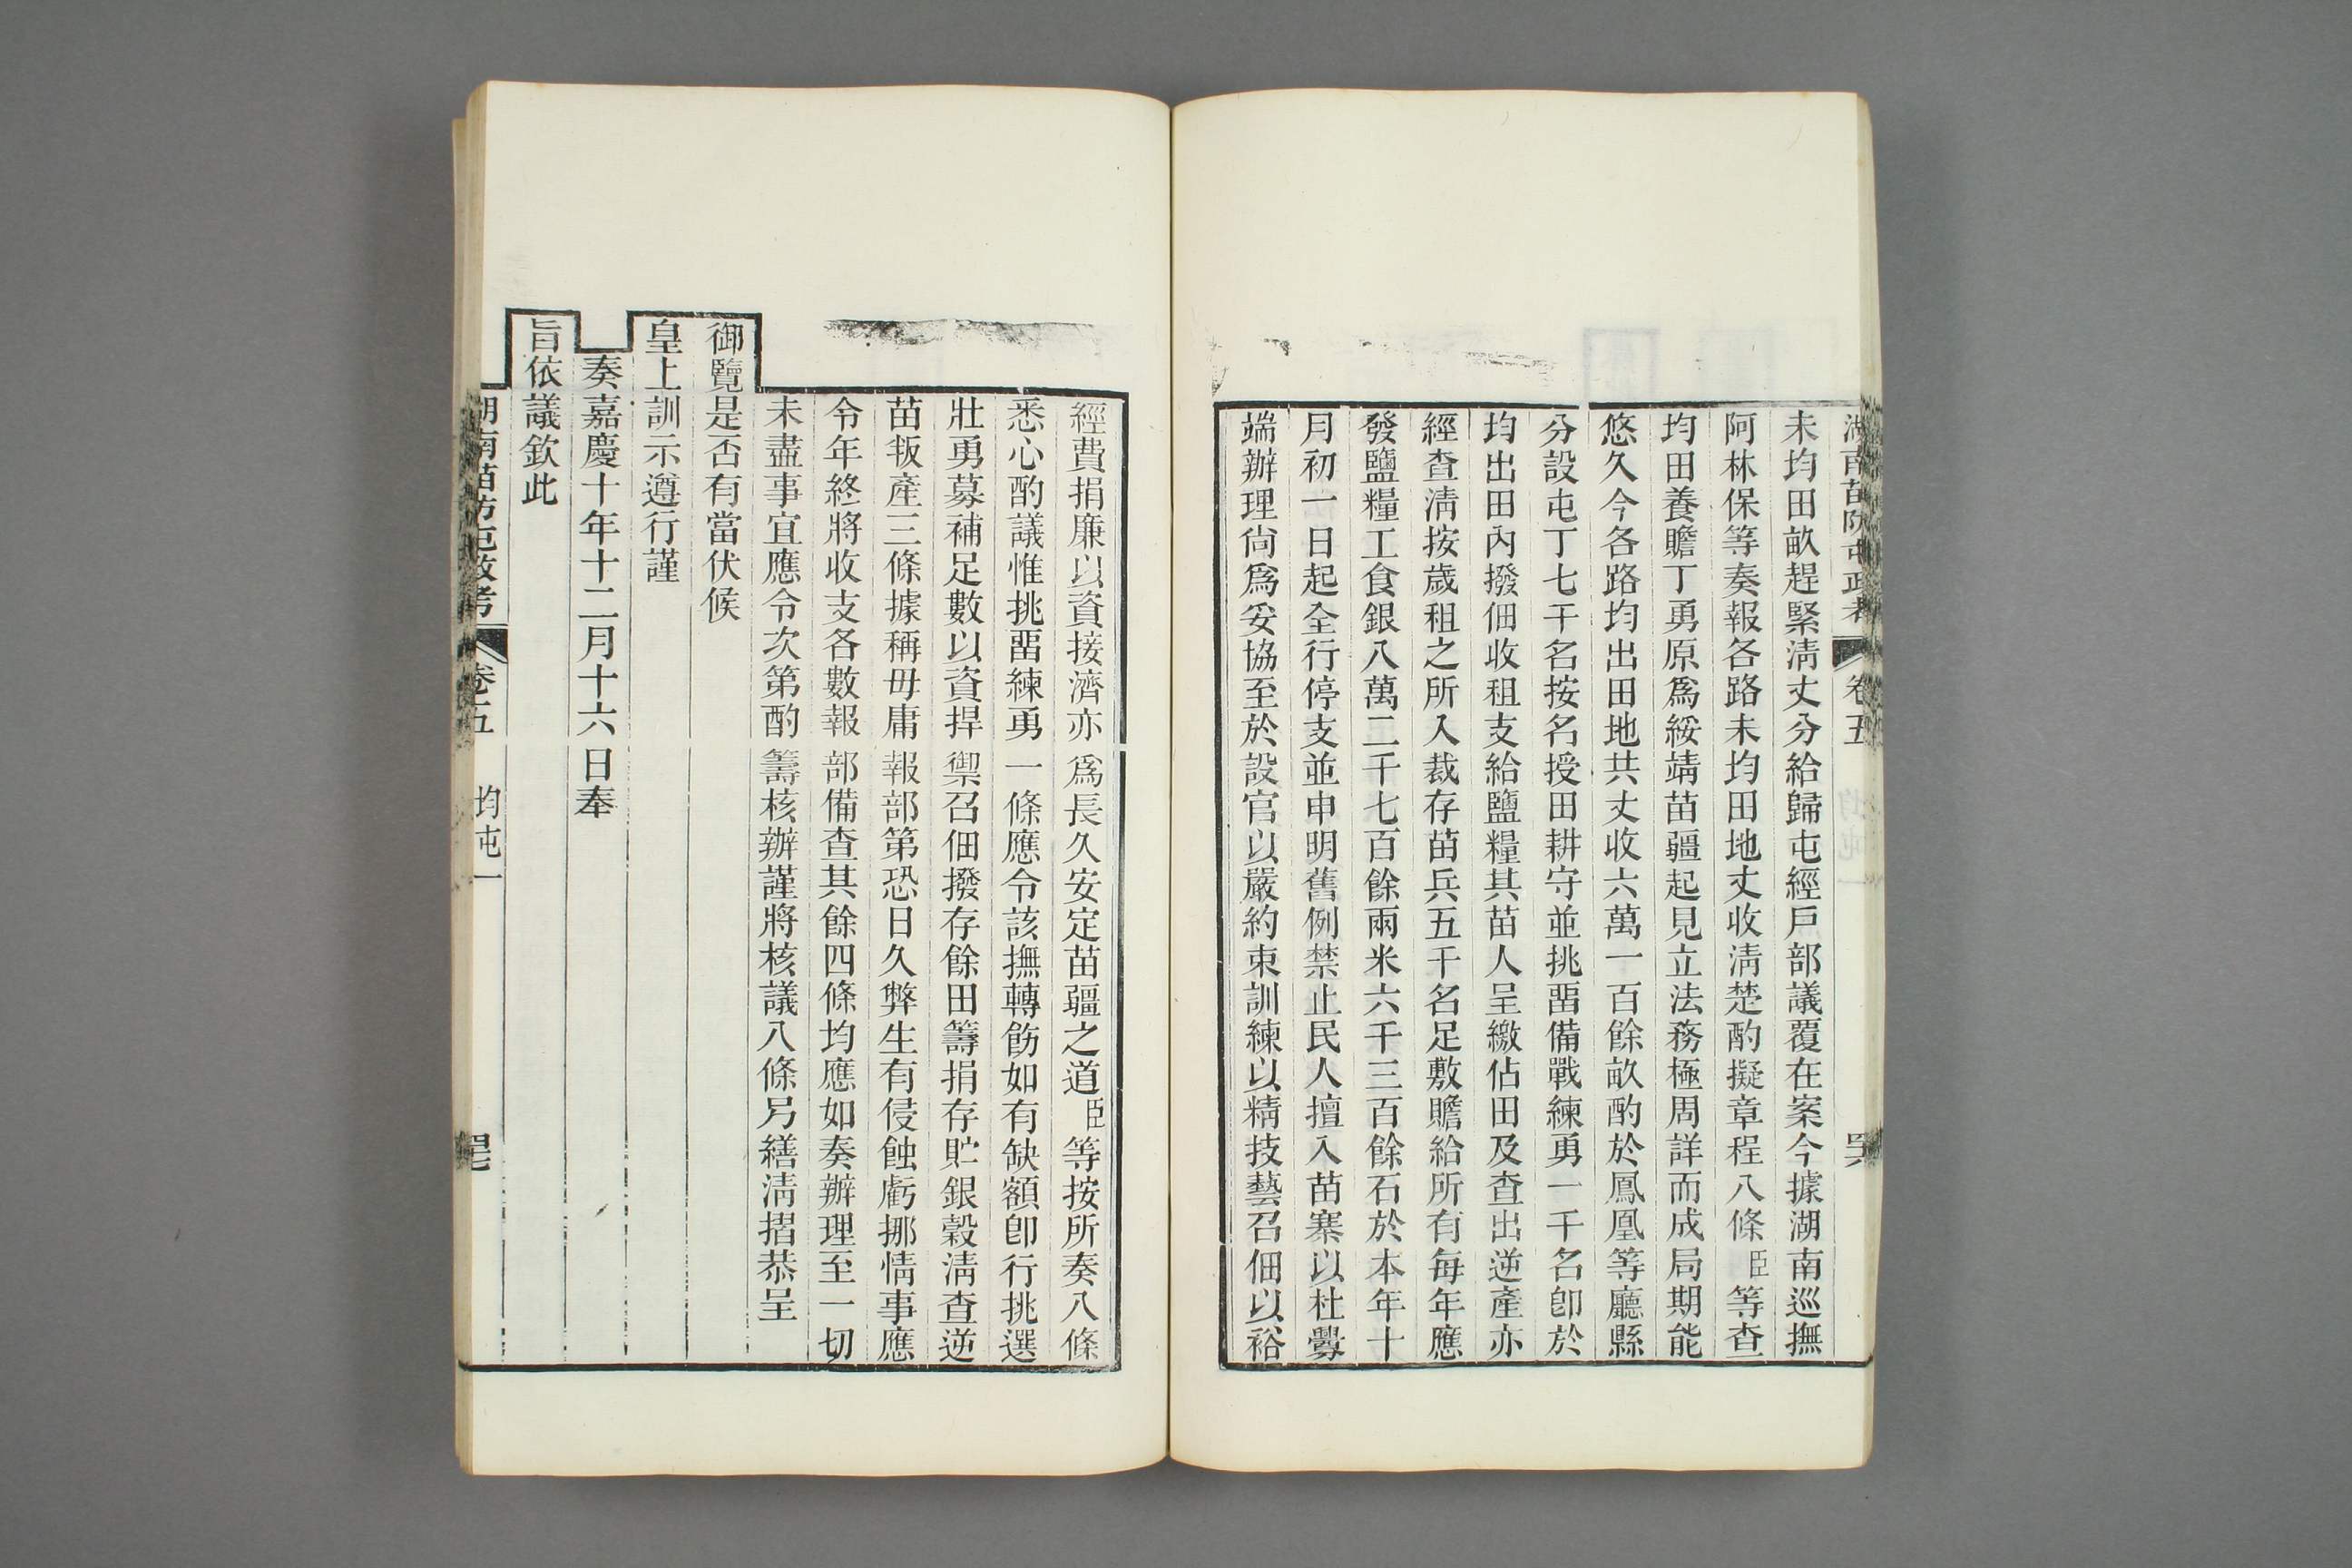 湖南苗防屯政考 卷五
未均田畝趕緊淸丈分給歸屯經戶部議覆在案今據湖南巡撫
阿林保等奏報各路未均田地丈收淸楚酌擬章程八條臣等查
均田養贍丁勇原爲綏靖苗疆起見立法務極周詳而成局期能
悠久今各路均出田地共丈收六萬一百餘畝酌於鳳凰等廳縣
分設屯丁七千名按名授田耕守並挑畱備戰練勇一千名卽於
均出田內撥佃收租支給鹽糧其苗人呈繳佔田及查出逆產亦
經查淸按歲租之所入裁存苗兵五千名足敷贍給所有每年應
發鹽糧工食銀八萬二千七百餘兩米六千三百餘石於本年十
月初一日起全行停支並申明舊例禁止民人擅入苗寨以杜釁
端辦理尙爲妥協至於設官以嚴約束訓練以精技藝召佃以裕
經費捐廉以資接濟亦爲長久安定苗疆之道臣等按所奏八條
悉心酌議惟挑畱練勇一條應令該撫轉飭如有缺額卽行挑選
壯勇募補足數以資捍禦召佃撥存餘田籌捐存貯銀穀淸查逆
苗叛產三條據稱毋庸報部第恐日久弊生有侵蝕虧挪情事應
令年終將收支各數報部備查其餘四條均應如奏辦理至一切
未盡事宜應令次第酌籌核辦謹將核議八條另繕淸摺恭呈
御覽是否有當伏候
皇上訓示遵行謹
奏嘉慶十年十二月十六日奉
旨依議欽此
湖南苗防屯政考 卷五 均屯一